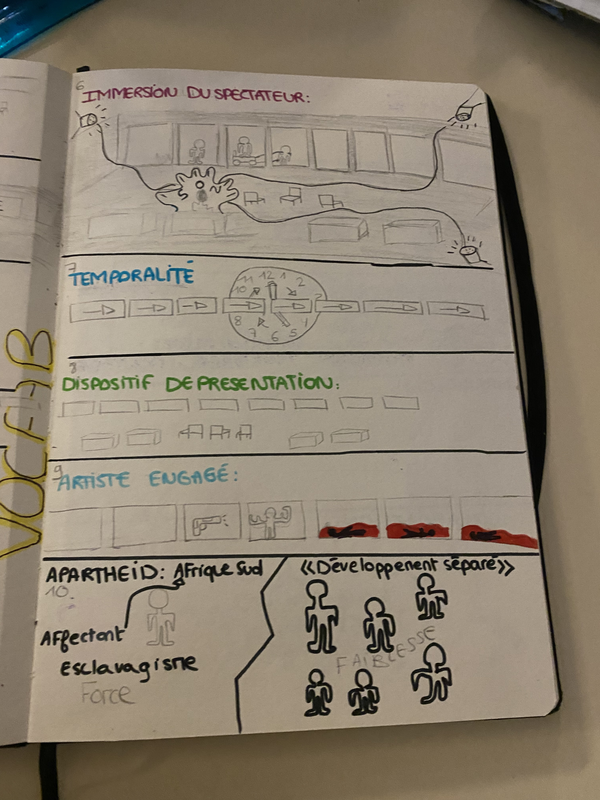 6
IMMERSION DU SPECTATEUR:
7
TEMPORALITÉ
11 12 1
10 2
8
7 6 5
8
DISPOSITIF DE PRESENTATION:
9
ARTISTE ENGAGÉ:
APARTHEID: AFrique Sud
10.
AFFectant
esclavagisme
Force
«Développement séparé»
FAIBLESSE
VOCAB